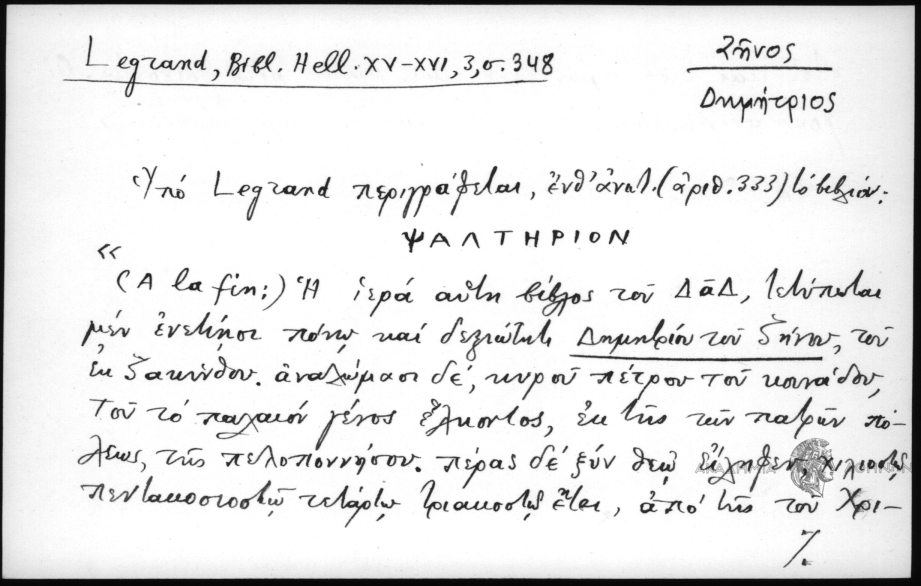 Legrand, Bibl. Hell. XV-XVI, 3, σ. 348
Ζῆνος
Δημήτριος
Ὑπό Legrand περιγράφεται, ἔνθ' ἀνωτ. (ἀριθ. 333) τό βιβλίον:
ΨΑΛΤΗΡΙΟΝ
«
(A la fin:) Ἡ ἱερά αὕτη βίβλος τοῦ Δᾱδ, τετύπωται
μέν ἐνετίησι πόνῳ καί δεξιώτητι Δημητρίου τοῦ ζήνου, τοῦ
ἐκ ζακύνθου. ἀναλώμασι δέ, κυροῦ πέτρου τοῦ κουνάδου,
τοῦ τό παλαιόν γένος ἕλκοντος, ἐκ τῆς τῶν πατρῶν πό-
λεως, τῆς πελοποννήσου. πέρας δέ ξύν θεῷ εἴληφεν, χιλιοστῷ
πεντακοσιοστῷ τετάρτῳ τριακοστῷ ἔτει, ἀπό τῆς τοῦ Χρι-
7.